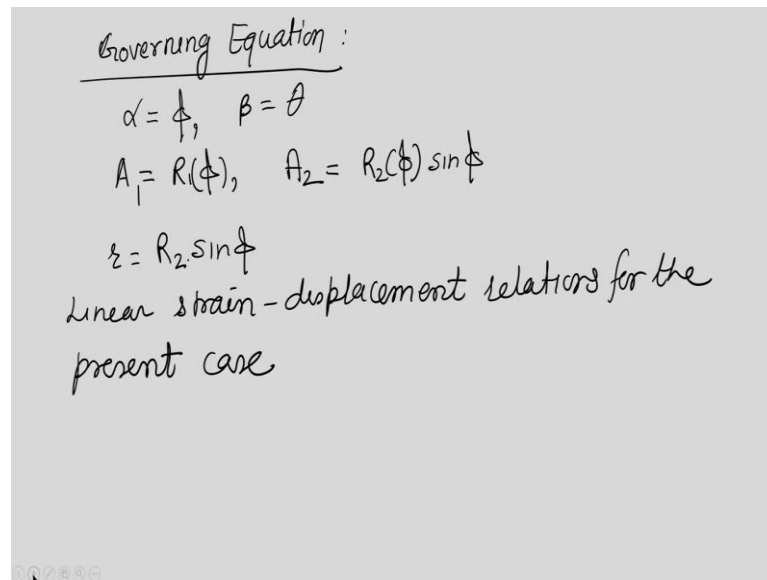 Governing Equation :
α = ϕ, β = θ
A₁ = R₁(ϕ), A₂ = R₂(ϕ) sinϕ
r = R₂.sinϕ
Linear strain-displacement relations for the
present case